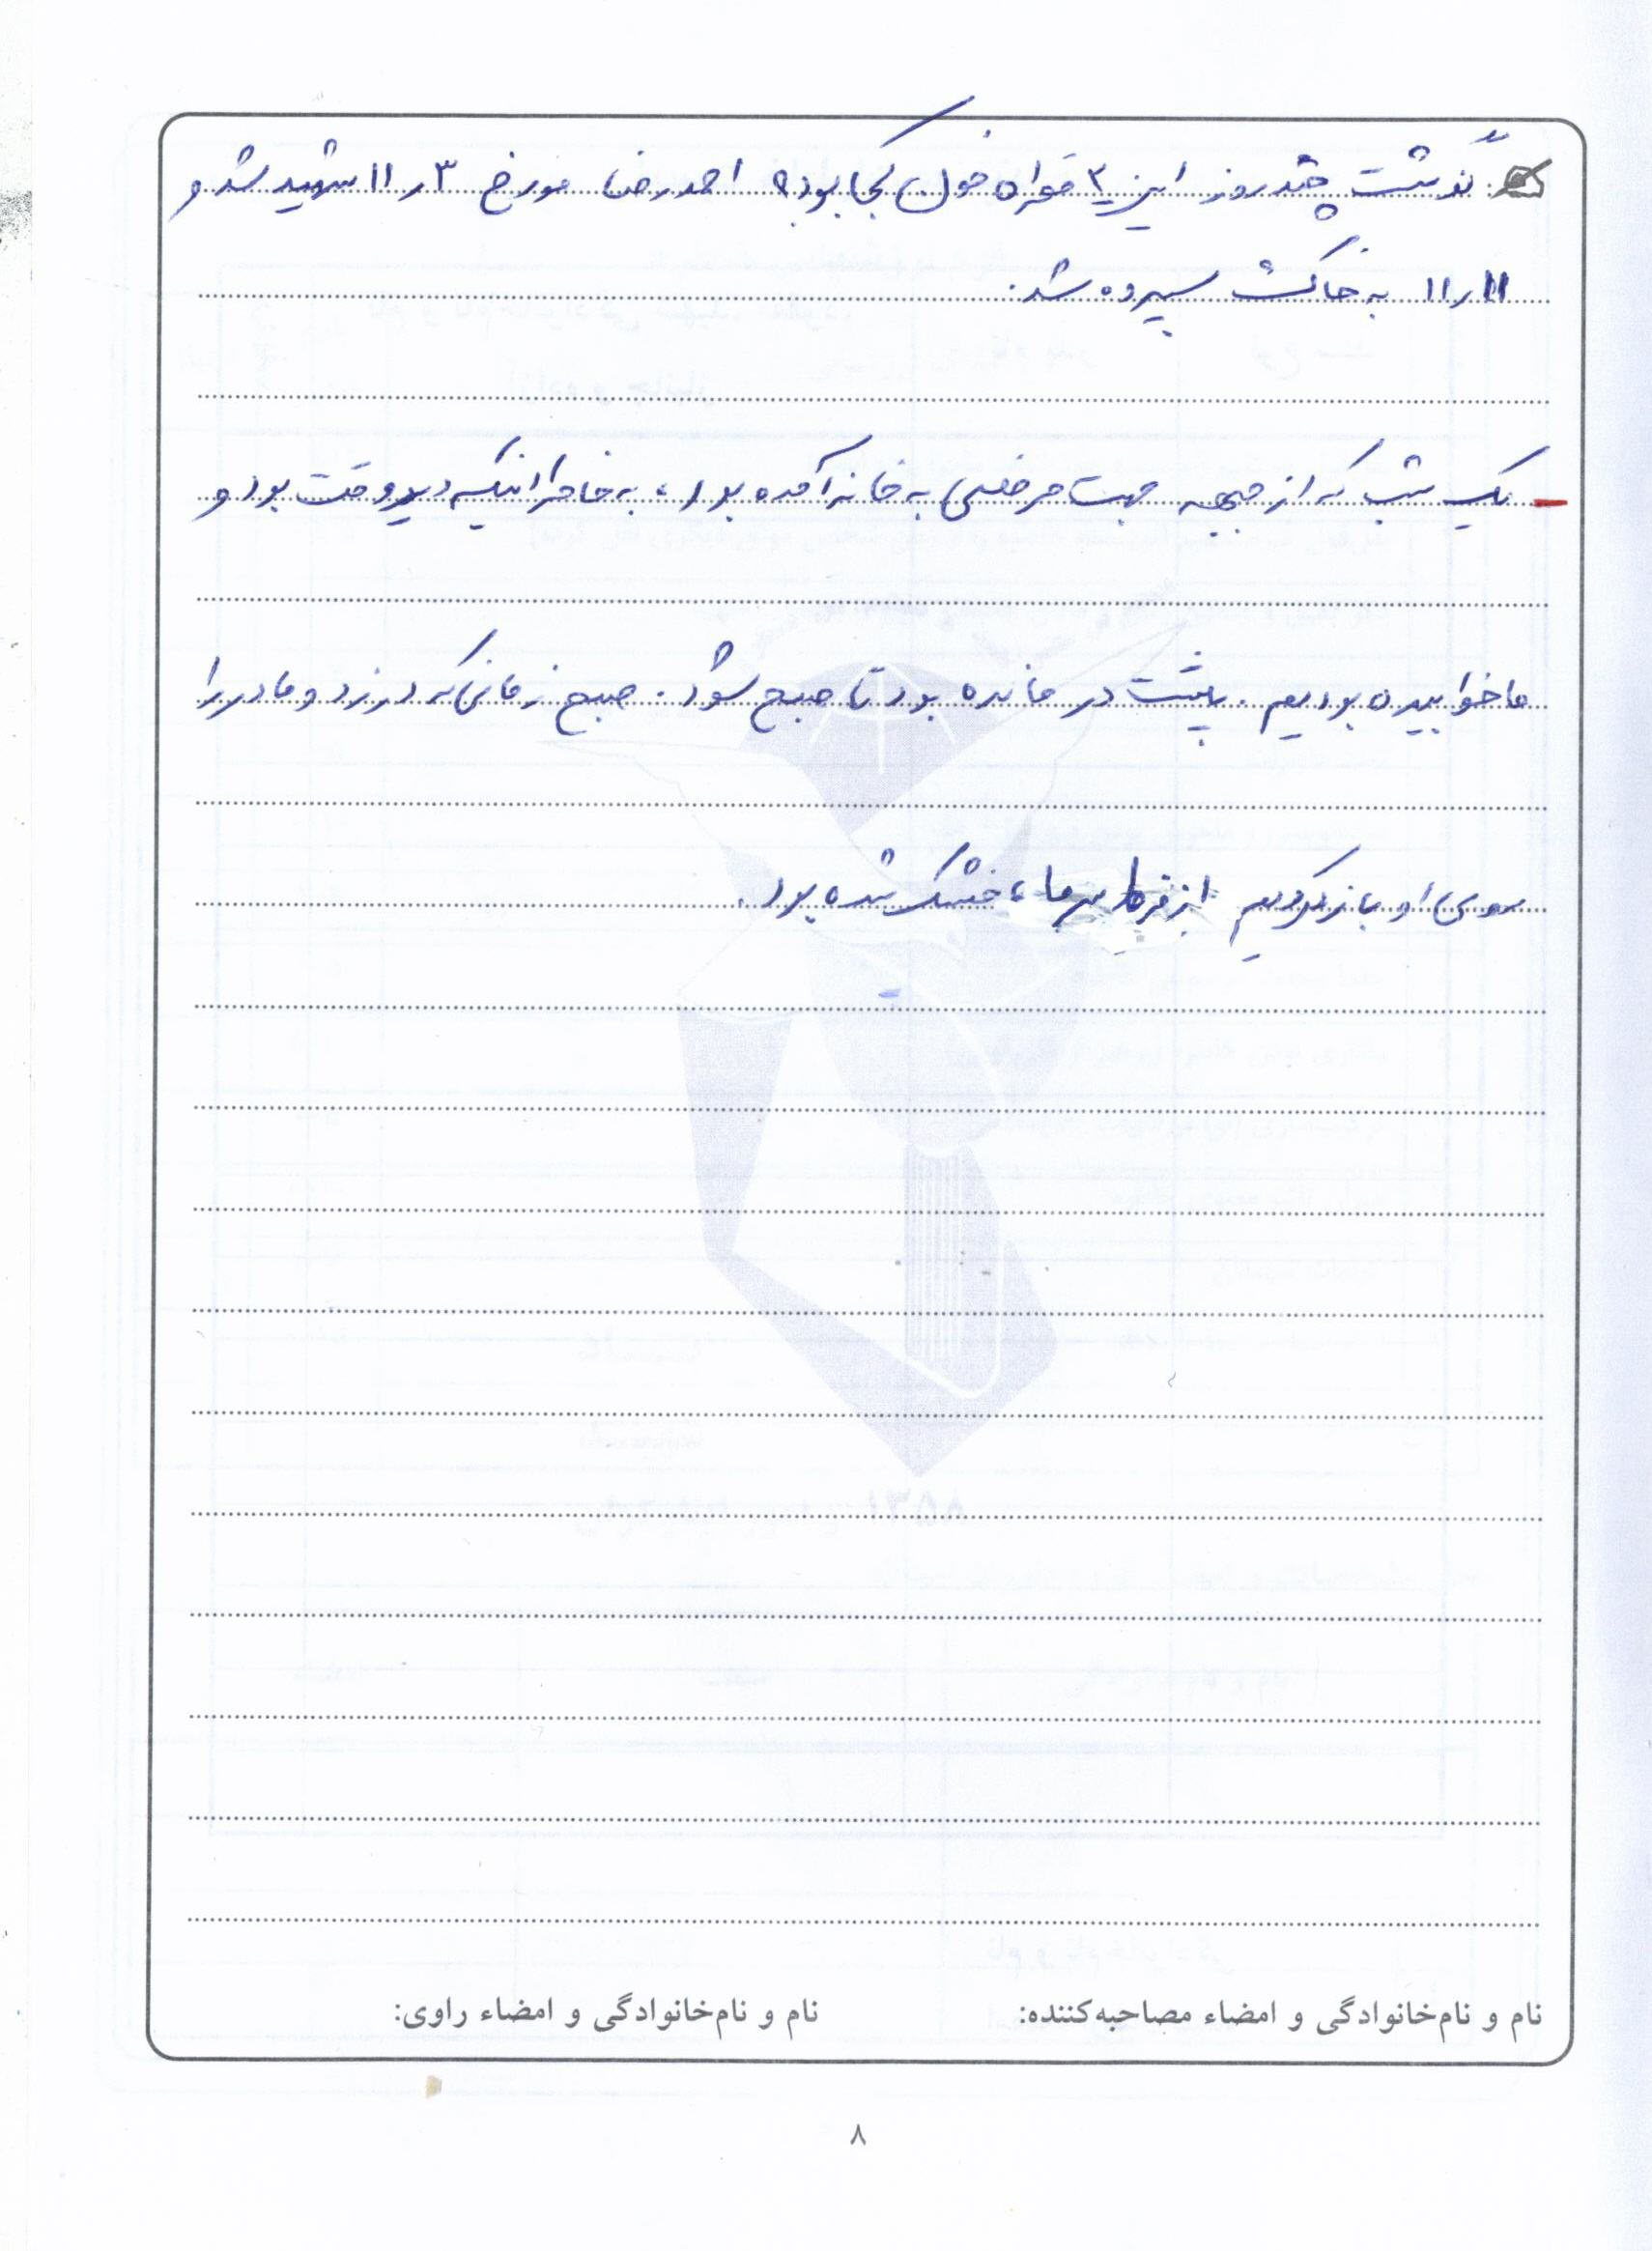 گذشت چند روز این ۳ قواره خون کجا بود؟ احمدرضا مورخ ۳ر۱۱ شهید شد و
۱۱ر۱۱ به خاک سپرده شد.
– یک شب که از جبهه جهت مرخصی به خانه آمده بود، به خاطر اینکه دیروقت بود و
ما خوابیده بودیم. پشت در مانده بود تا صبح شود. صبح زمانی که در زد و ما در را
سوی او باز کردیم از فرط سرما، خشک شده بود.
نام و نام‌خانوادگی و امضاء مصاحبه‌کننده: نام و نام‌خانوادگی و امضاء راوی:
۸